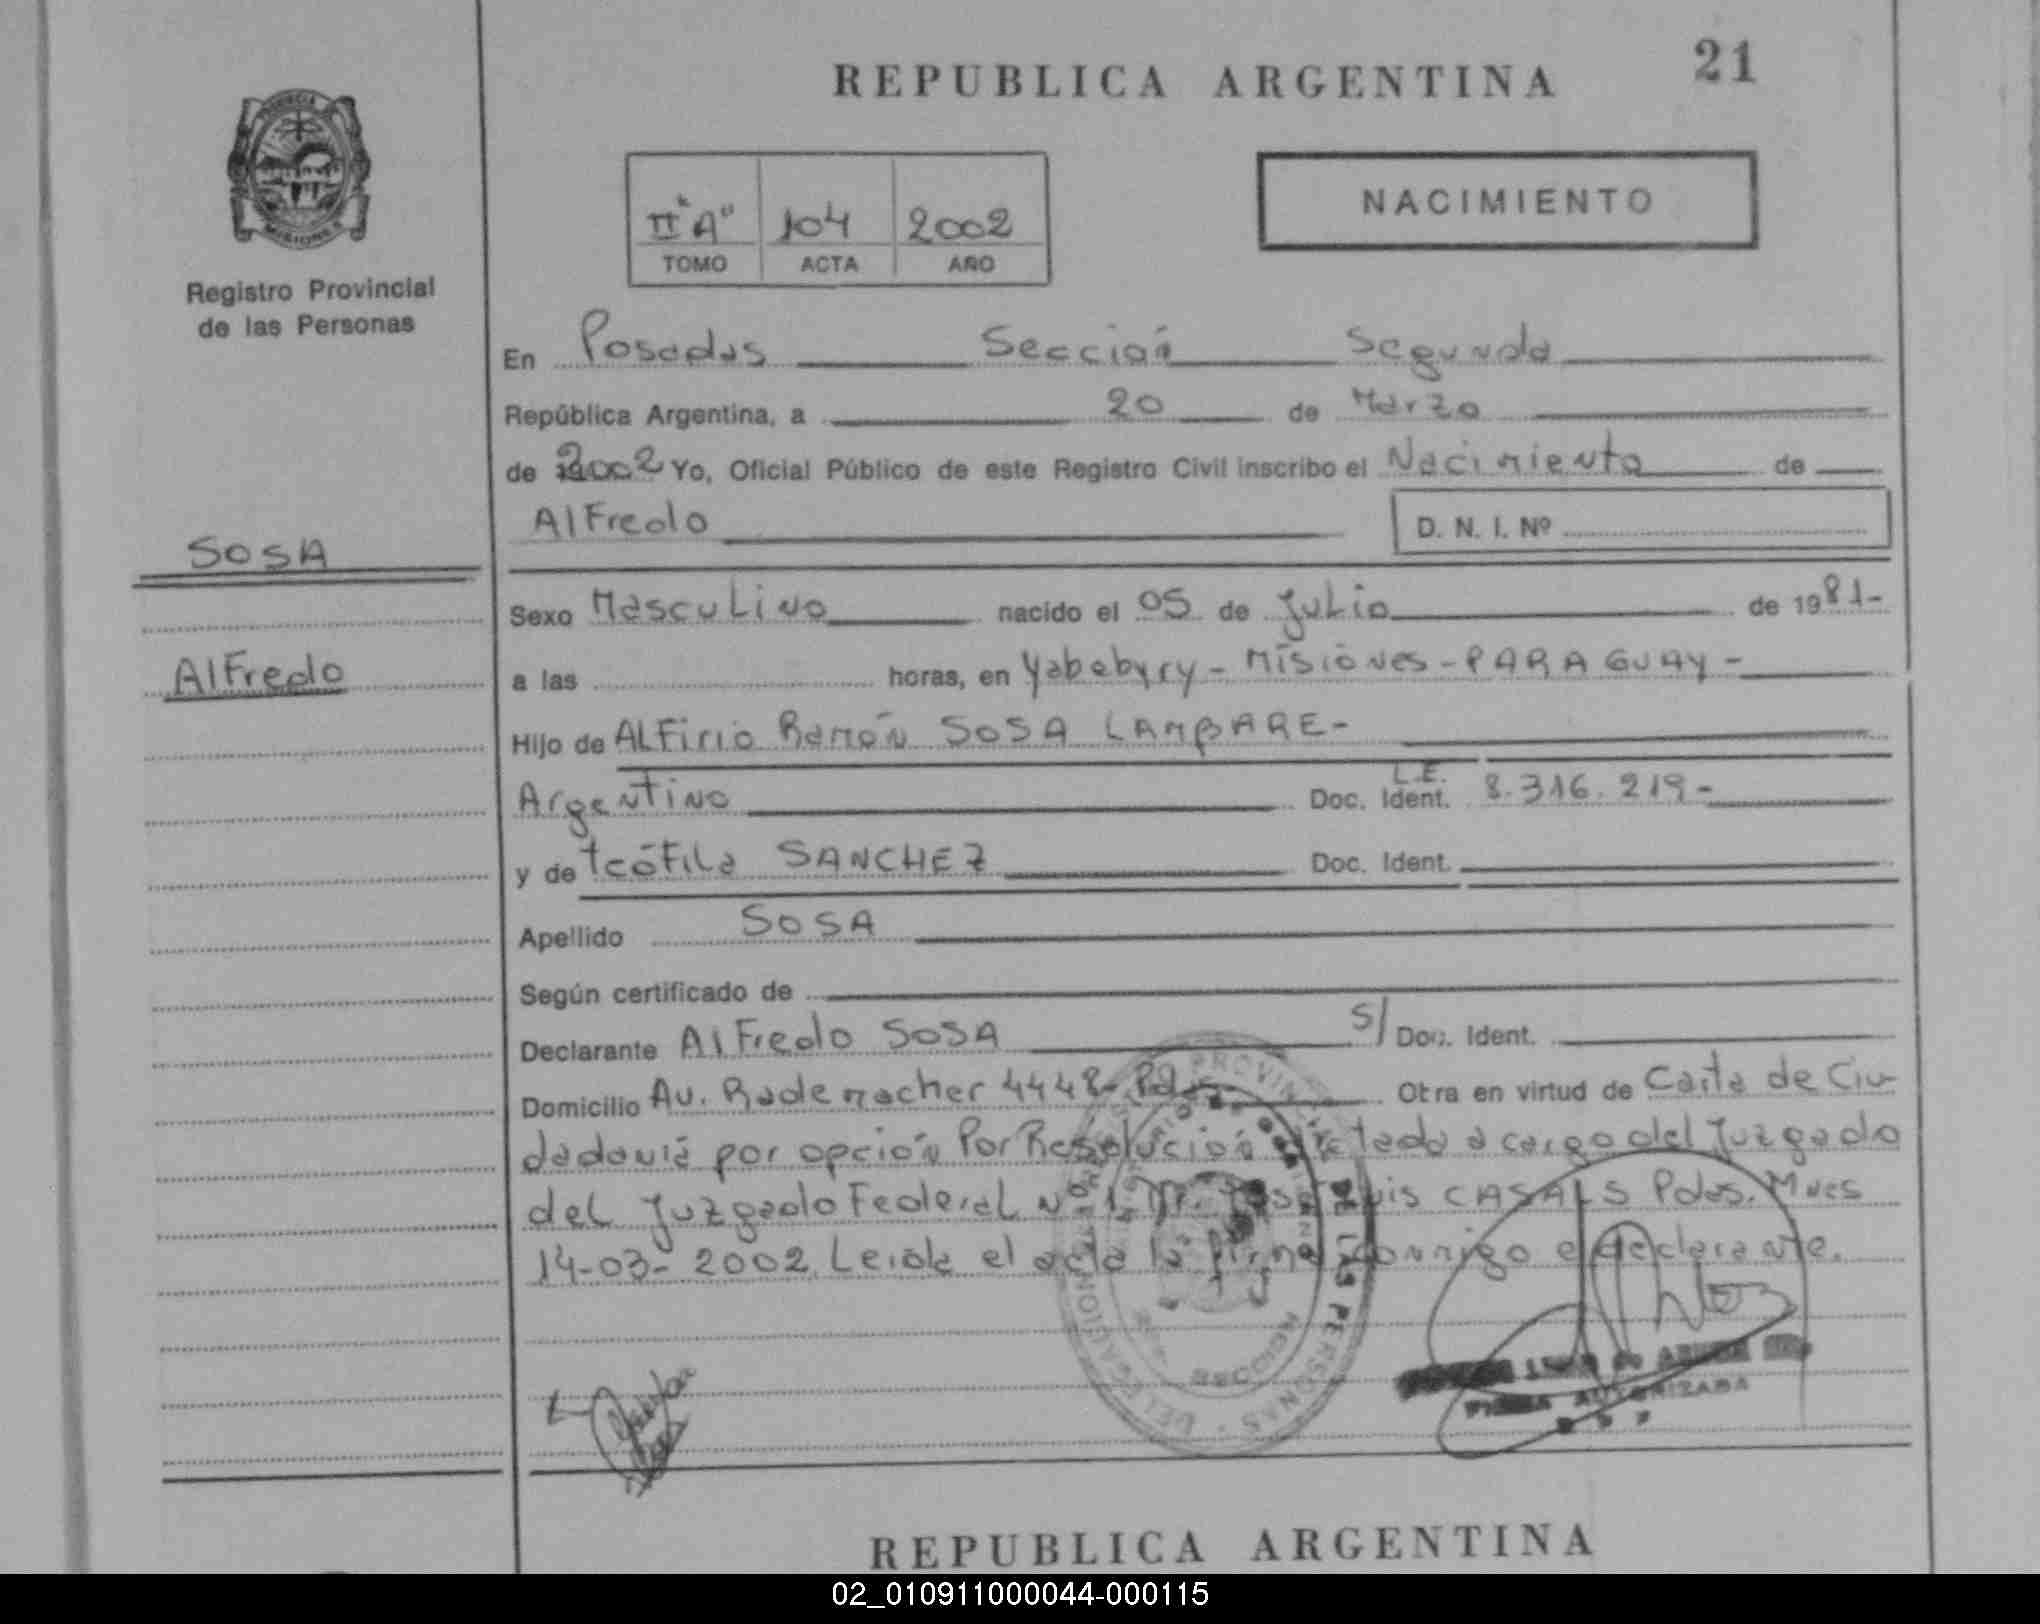 REPUBLICA ARGENTINA
21
MISIONES
Registro Provincial
de las Personas
II "A" 104 2002
TOMO ACTA AÑO
NACIMIENTO
En Posadas Sección Segunda
República Argentina, a 20 de Marzo
de 2002 Yo, Oficial Público de este Registro Civil inscribo el Nacimiento de
Alfredo
D. N. I. Nº
SOSA
Alfredo
Sexo Masculino nacido el 05 de Julio de 1981-
a las horas, en Yabebyry - Misiones - PARAGUAY -
Hijo de ALFirio Ramón SOSA LAMBARE-
Argentino Doc. Ident. L.E. 8.316.219-
y de teófila SANCHEZ Doc. Ident.
Apellido SOSA
Según certificado de
Declarante Alfredo SOSA S/ Doc. Ident.
Domicilio Av. Rademacher 4448- Otra en virtud de Carta de Ciu-
dadania por opción Por Resolución a cargo del Juzgado
del Juzgado Federal Nº 1 Dr. José Luis CASALS Pdas. Mnes
14-03-2002. Leida el acta la firma conmigo el declarante.
PROVINCIAL DE LAS PERSONAS
DELEGACION
FIRMA AUTORIZADA
REPUBLICA ARGENTINA
02_010911000044-000115